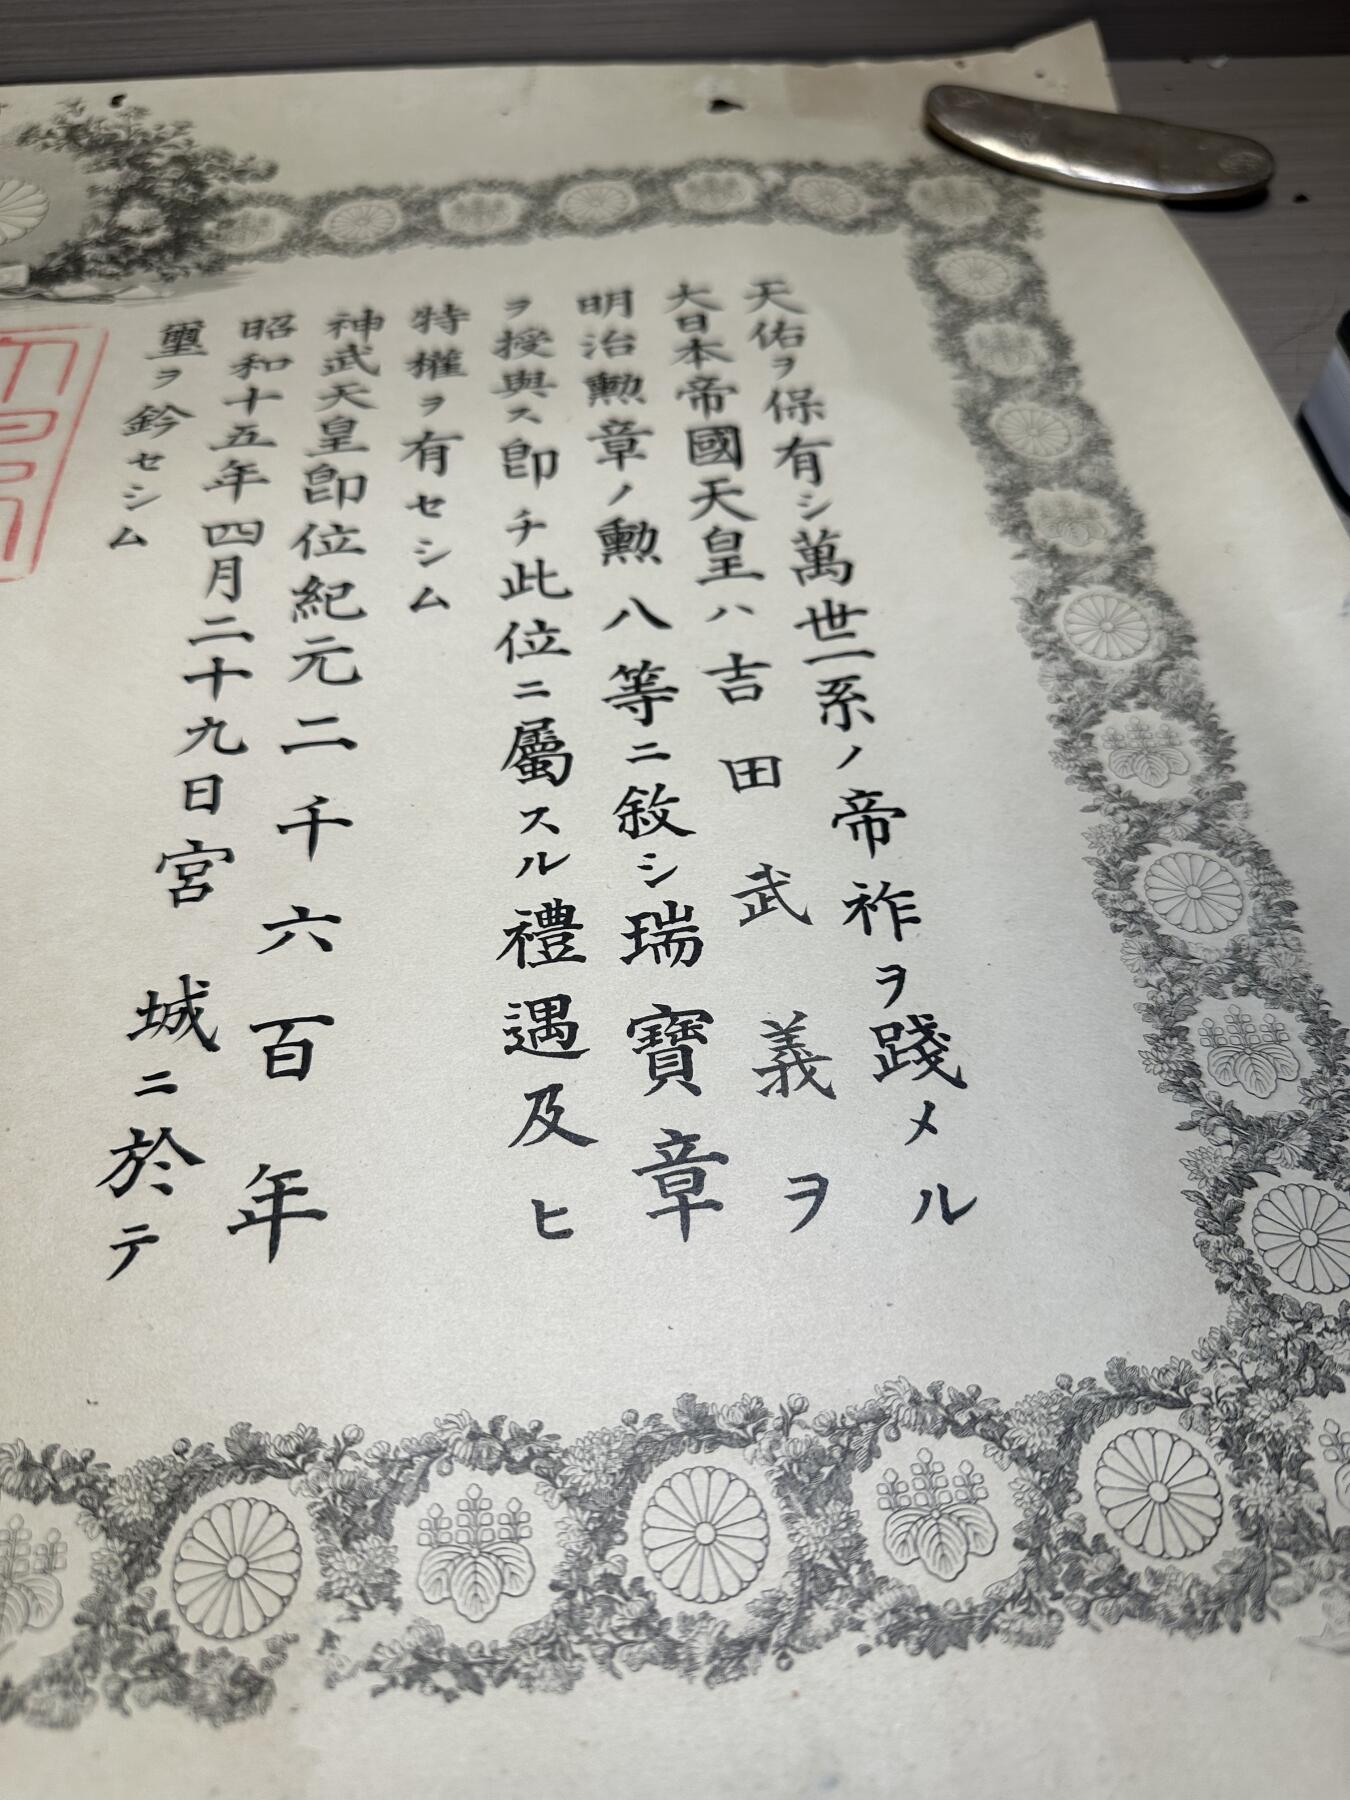 天佑ヲ保有シ萬世一系ノ帝祚ヲ踐メル
大日本帝國天皇ハ吉田武義ヲ
明治勲章ノ勲八等ニ敘シ瑞寶章
ヲ授與ス即チ此位ニ屬スル禮遇及ヒ
特權ヲ有セシム
神武天皇即位紀元二千六百年
昭和十五年四月二十九日宮城ニ於テ
璽ヲ鈐セシム